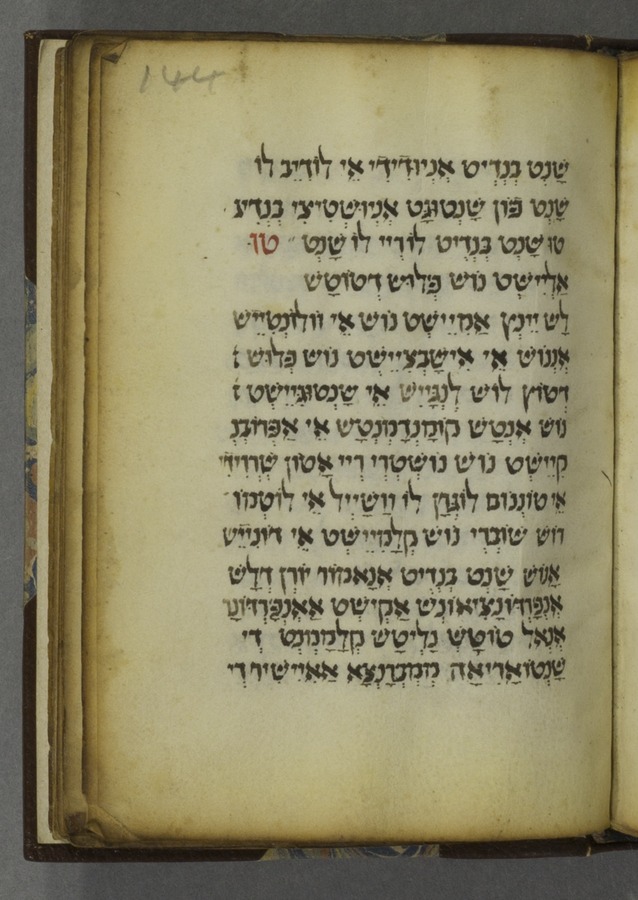 144
שנט בנדיט אניודידי אי לודיב לו
שנט פון שנטוגט אניושטיצי בנדיע
טו שנט בנדיט לודיי לו שנט טו
אלישט נוש פלוש דטוטש
לש יינץ אמיישט נוש אי וולונטייש
אננוש אי אישבצייישט נוש פלוש ז
דטוץ לוש לנגייש אי שנטוגיישט ז
נוש אנטש קומנדמנטש אי אפרובנ
קיישט נוש נושטרי ריי אטון שרוידי
אי טוננום לוגרן לו ווששייל אי לוטמו
דוש שוברי נוש קלמיישט אי דוניייש
אנוש שנט בנדיט אנאמור יורן דלש
אנפרדונציאונש אקישט אאנפרדונר
אנאל טוטש גליטש קלממנט די
שנטואריאה ממברנצא אאיישירדי